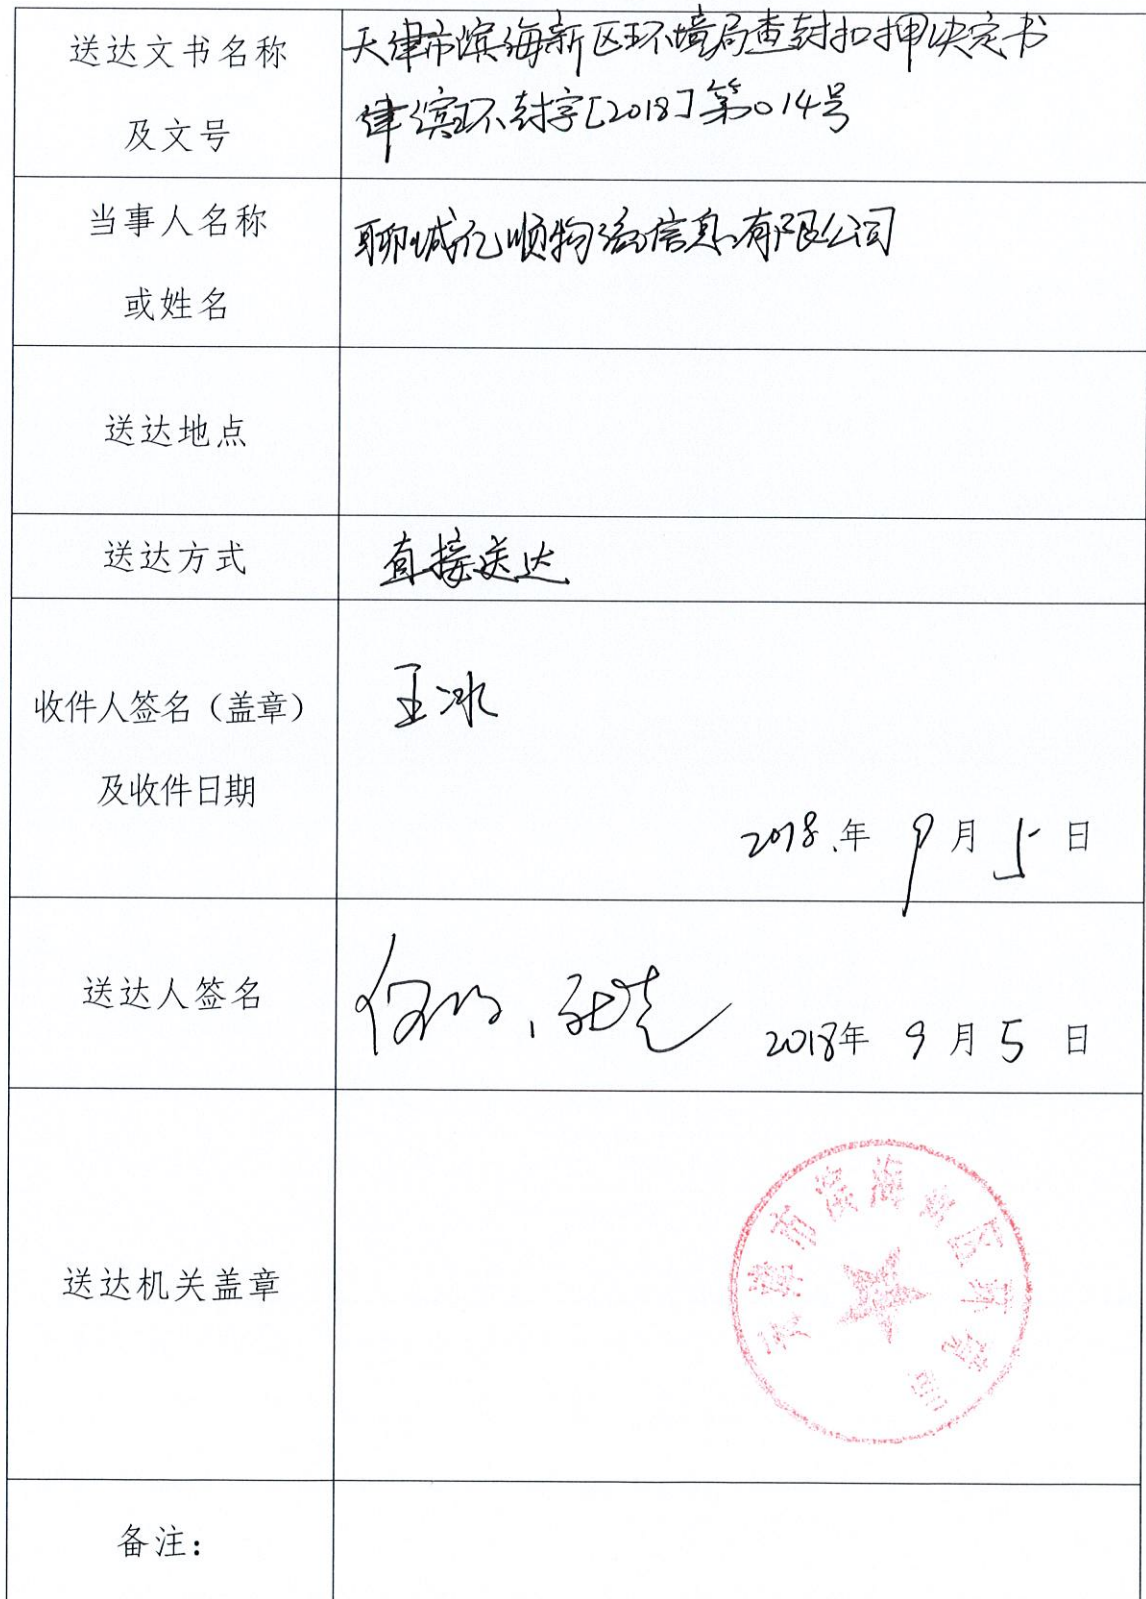 送达文书名称
及文号
天津市滨海新区环境局查封扣押决定书
津滨环封字[2018]第014号
当事人名称
或姓名
聊城亿顺物流信息有限公司
送达地点
送达方式
直接送达
收件人签名（盖章）
及收件日期
王冰
2018.年 9月 5日
送达人签名
2018年 9月 5日
送达机关盖章
天津市滨海新区环境局
备注：